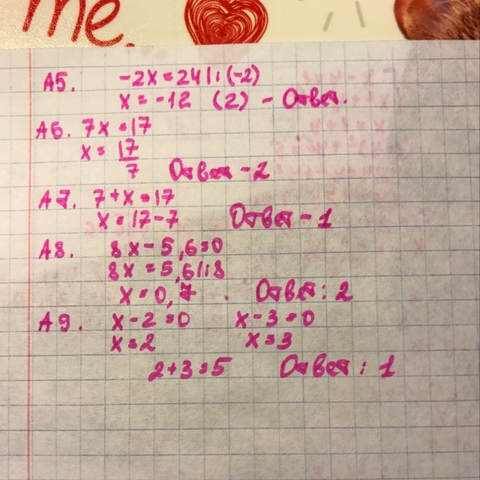 me.
A5. -2x=24|:(-2)
x=-12 (2) - Ответ.
A6. 7x=17
x=17/7
Ответ - 2
A7. 7+x=17
x=17-7 Ответ - 1
A8. 8x-5,6=0
8x=5,6|:8
x=0,7. Ответ: 2
A9. x-2=0 x-3=0
x=2 x=3
2+3=5 Ответ: 1